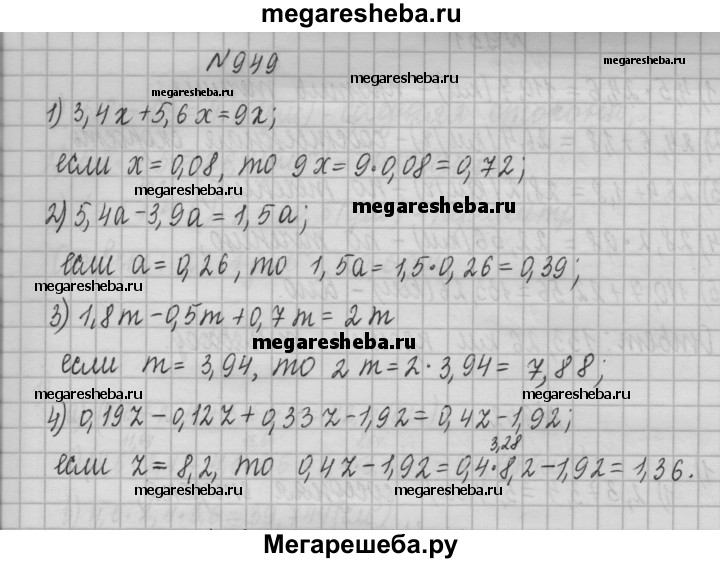 megaresheba.ru
№949
megaresheba.ru
megaresheba.ru
1) 3,4x+5,6x=9x;
если x=0,08, то 9x=9·0,08=0,72;
megaresheba.ru
megaresheba.ru
2) 5,4a-3,9a=1,5a;
если a=0,26, то 1,5a=1,5·0,26=0,39;
megaresheba.ru
megaresheba.ru
3) 1,8m-0,5m+0,7m=2m
megaresheba.ru
если m=3,94, то 2m=2·3,94=7,88;
megaresheba.ru
megaresheba.ru
4) 0,19z-0,12z+0,33z-1,92=0,4z-1,92;
3,28
если z=8,2, то 0,4z-1,92=0,4·8,2-1,92=1,36.
megaresheba.ru
megaresheba.ru
Мегарешеба.ру